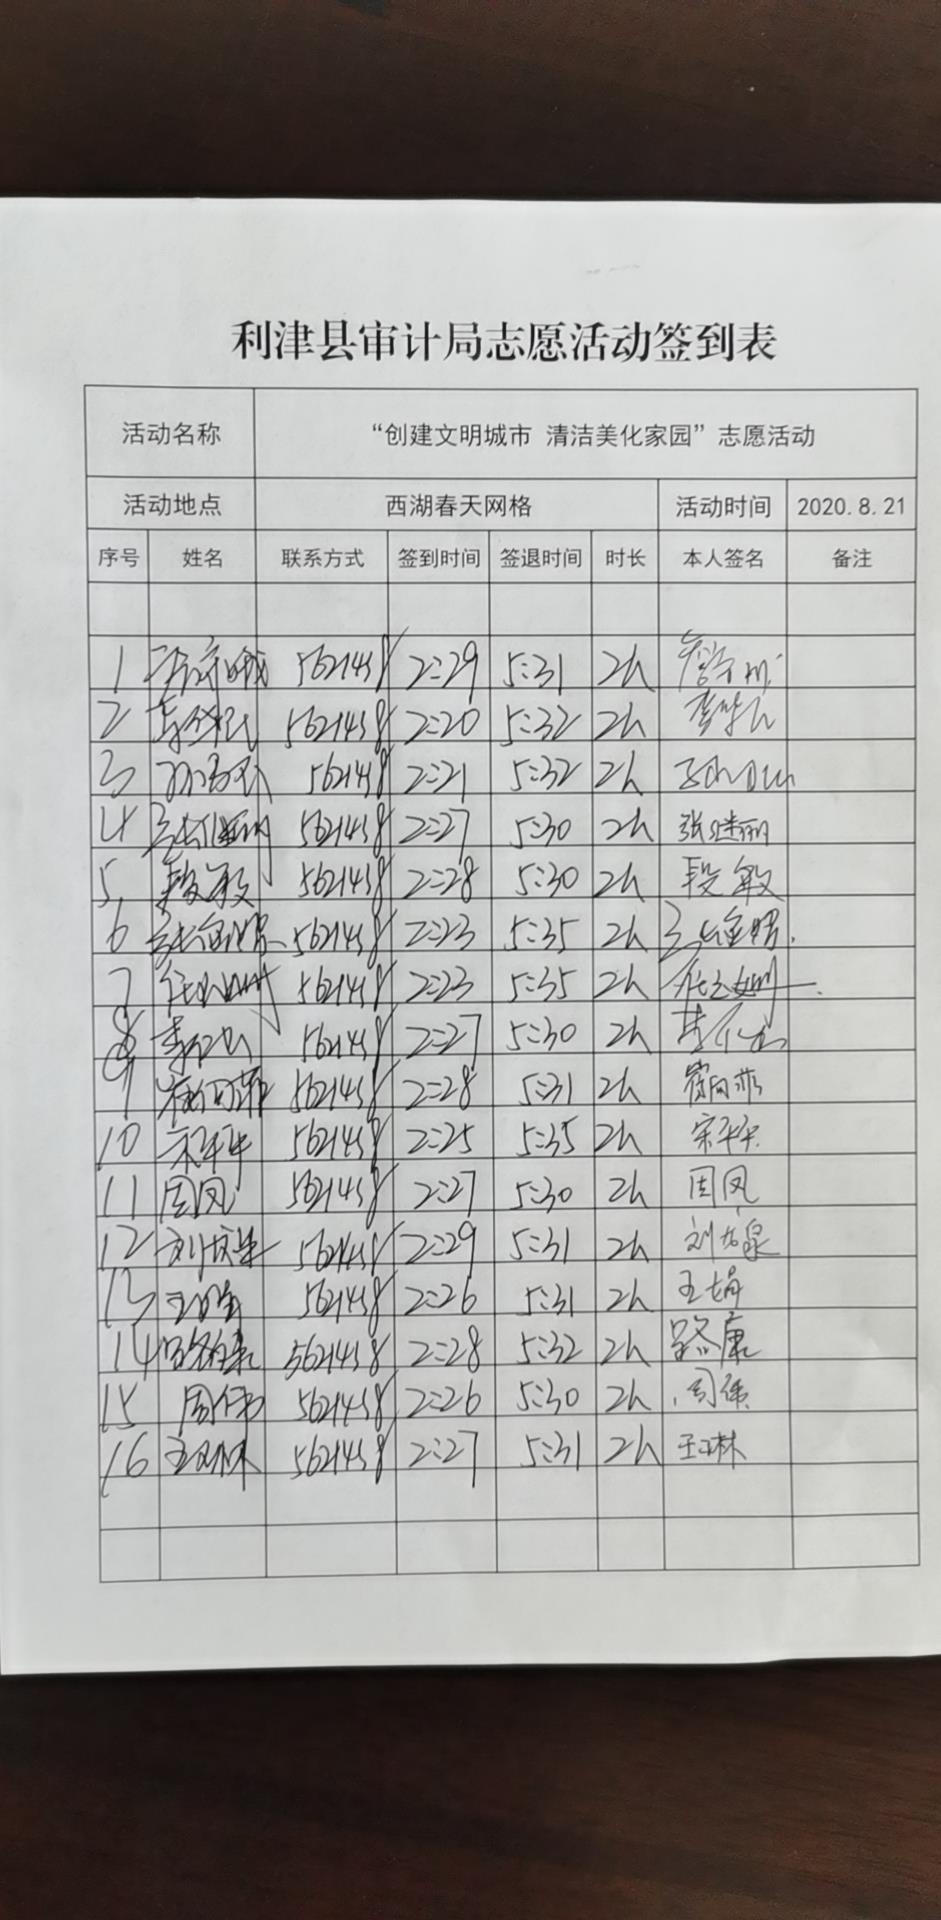 利津县审计局志愿活动签到表
活动名称 “创建文明城市 清洁美化家园”志愿活动
活动地点 西湖春天网格 活动时间 2020.8.21
序号 姓名 联系方式 签到时间 签退时间 时长 本人签名 备注
1 5621458 2:29 5:31 2h
2 5621458 2:20 5:32 2h
3 562148 2:21 5:32 2h
4 张继丽 5621458 2:27 5:30 2h 张继丽
5 段敏 5621458 2:28 5:30 2h 段敏
6 5621458 2:23 5:35 2h
7 5621458 2:23 5:35 2h
8 562148 2:27 5:30 2h
9 5621458 2:28 5:31 2h
10 宋平平 5621458 2:25 5:35 2h 宋平平
11 周凤 5621458 2:27 5:30 2h 周凤
12 5621458 2:29 5:31 2h
13 王娟 5621458 2:26 5:31 2h 王娟
14 5621458 2:28 5:32 2h 路康
15 周伟 5621458 2:26 5:30 2h 周伟
16 5621458 2:27 5:31 2h